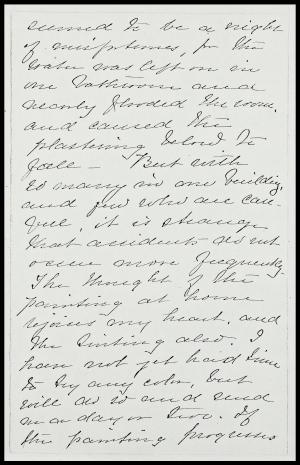 seemed to be a night
of misfortunes, for the
water was left on in
one bathroom and
nearly flooded the room,
and caused the
plastering below to
fall — But with
so many in one building,
and few who are care-
ful, it is strange
that accidents do not
occur more frequently.
The thought of the
painting at home
rejoices my heart, and
the tinting also. I
have not yet had time
to try any color, but
will do so and send
in a day or two. If
the painting progresses